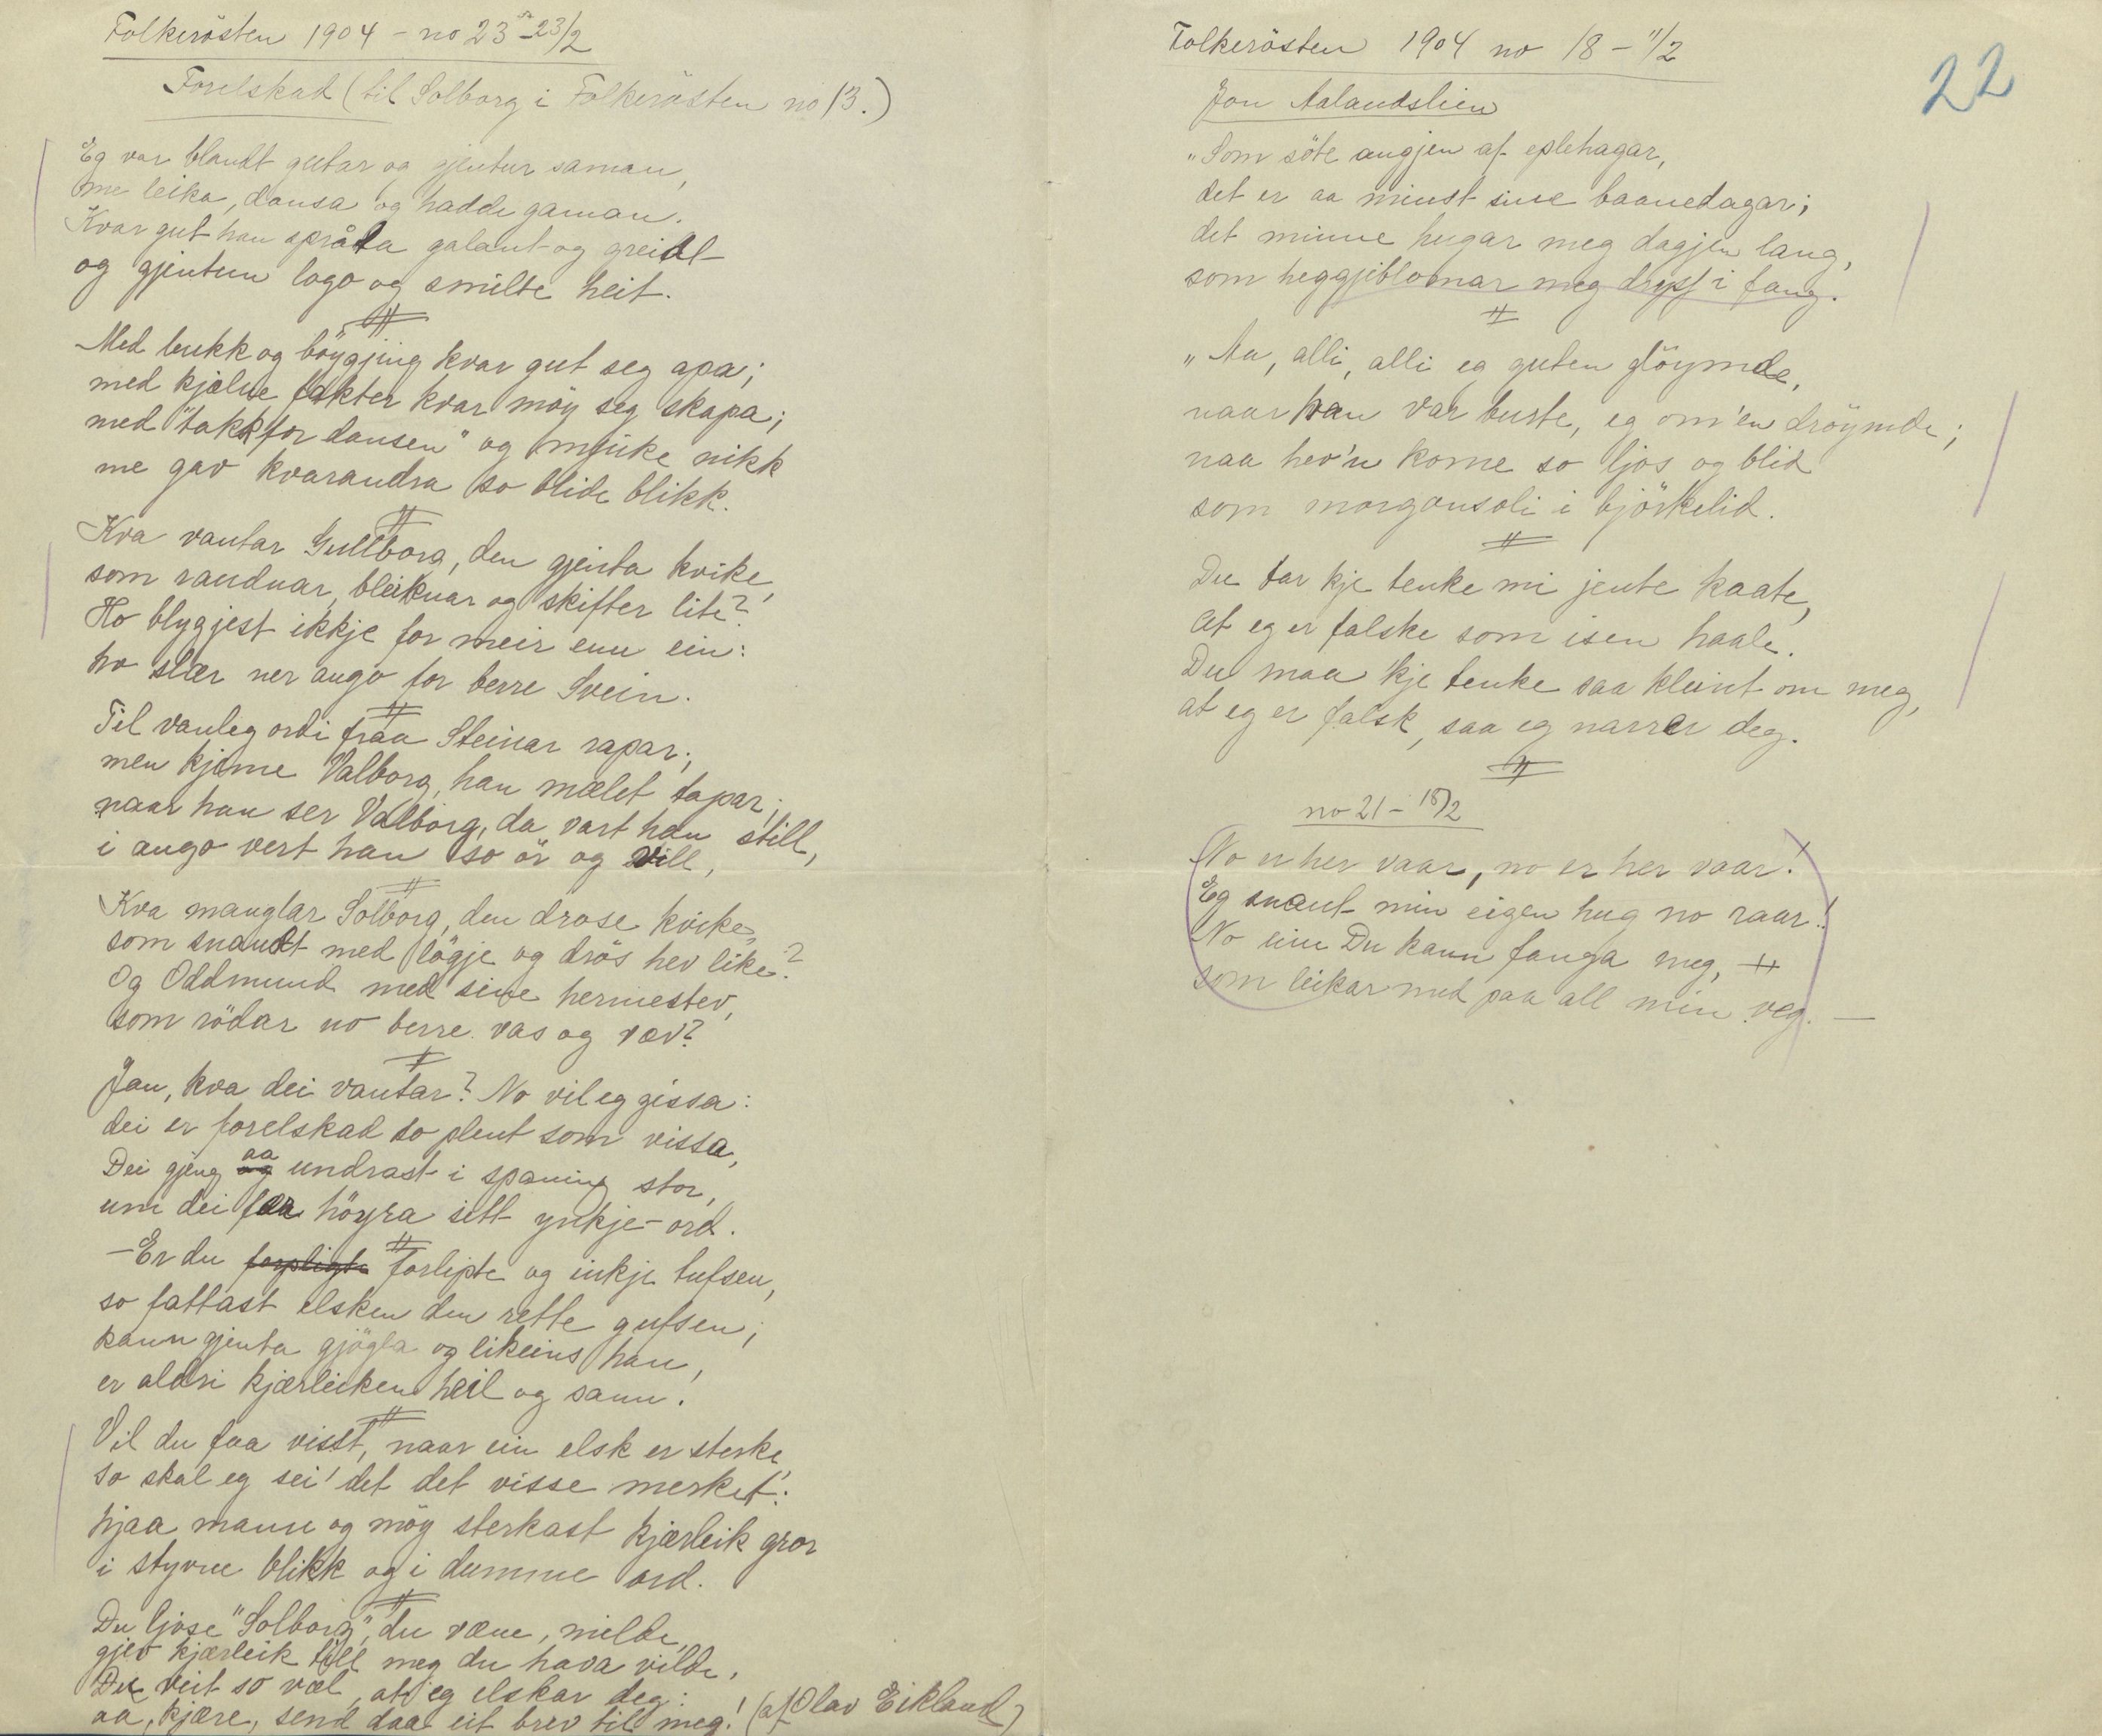 Folkerösten 1904 - no 23 - 23/2
Forelskad (til Solborg i Folkerösten no 13.)
Eg var blandt gutar og gjentur saman,
me leika, dansa og hadde gaman.
Kvar gut han språka galant og greidt
og gjentun logo og smilte heit.
Med bukk og böygjing kvar gut seg apa;
med kjælne fakter kvar möy seg skapa;
med "takk for dansen" og mjuke nikk
me gav kvarandra so blide blikk.
Kva vantar Gullborg, den gjenta kvike,
som raudnar, bleiknar og skifter lite?
Ho blygjest ikkje for meir enn ein:
ho slær ner augo for berre Svein.
Til vanleg ordi fraa Steinar rapar;
men kjeme Valborg, han mælet tapar;
naar han ser Valborg, da vart han still,
i augo vert han so ör og vill,
Kva manglar Solborg, den drose kvike,
som snaudt med lögje og drös hev like?
Og Oddmund med sine hermestev,
som rödar no berre vas og væv?
Jau, kva dei vantar? No vil eg gissa:
dei er forelskad so plent som vissa,
Dei gjeng og aa undrast i spaning stor,
um dei faa höyra sitt ynkje-ord.
- Er du forpligte forlipte og inkje tufsen,
so fattast elsken den rette gufsen;
kann gjenta gjögla og likeins han,
er aldri kjærleiken heil og sann.
Vil du faa visst, naar ein elsk er sterke,
so skal eg sei' det det visse merket:
hjaa mann og möy sterkast kjærleik gror
i styvne blikk og i dumme ord.
Du ljose "Solborg", du væne, milde,
gjev kjærleik till meg du hava vilde,
Du veit so væl, at eg elskar deg:
aa, kjære, send daa eit brev til meg! (af Olav Eikland)
Folkerösten 1904 no 18 - 11/2
22
Jon Aalandslien
"Som söte angjen af eplehagar,
det er aa minst sine baanedagar;
det minne hugar meg dagjen lang,
som heggjiblomar meg dryss i fang.
"Aa, alli, alli eg guten glöymde,
naar han var burte, eg om'en dröymde;
naa hev'n kome so ljos og blid
som morgonsoli i björkelid.
Du tar kje tenke mi jente kaate,
at eg er falske som isen haale.
Du maa 'kje tenke saa kleint om meg,
at eg er falsk, saa eg narrer deg.
no 21 - 18/2
No er her vaar, no er her vaar!
Eg snaut min eigen hug no raar!
No ein Du kann fanga meg,
som leikar med paa all min veg. -